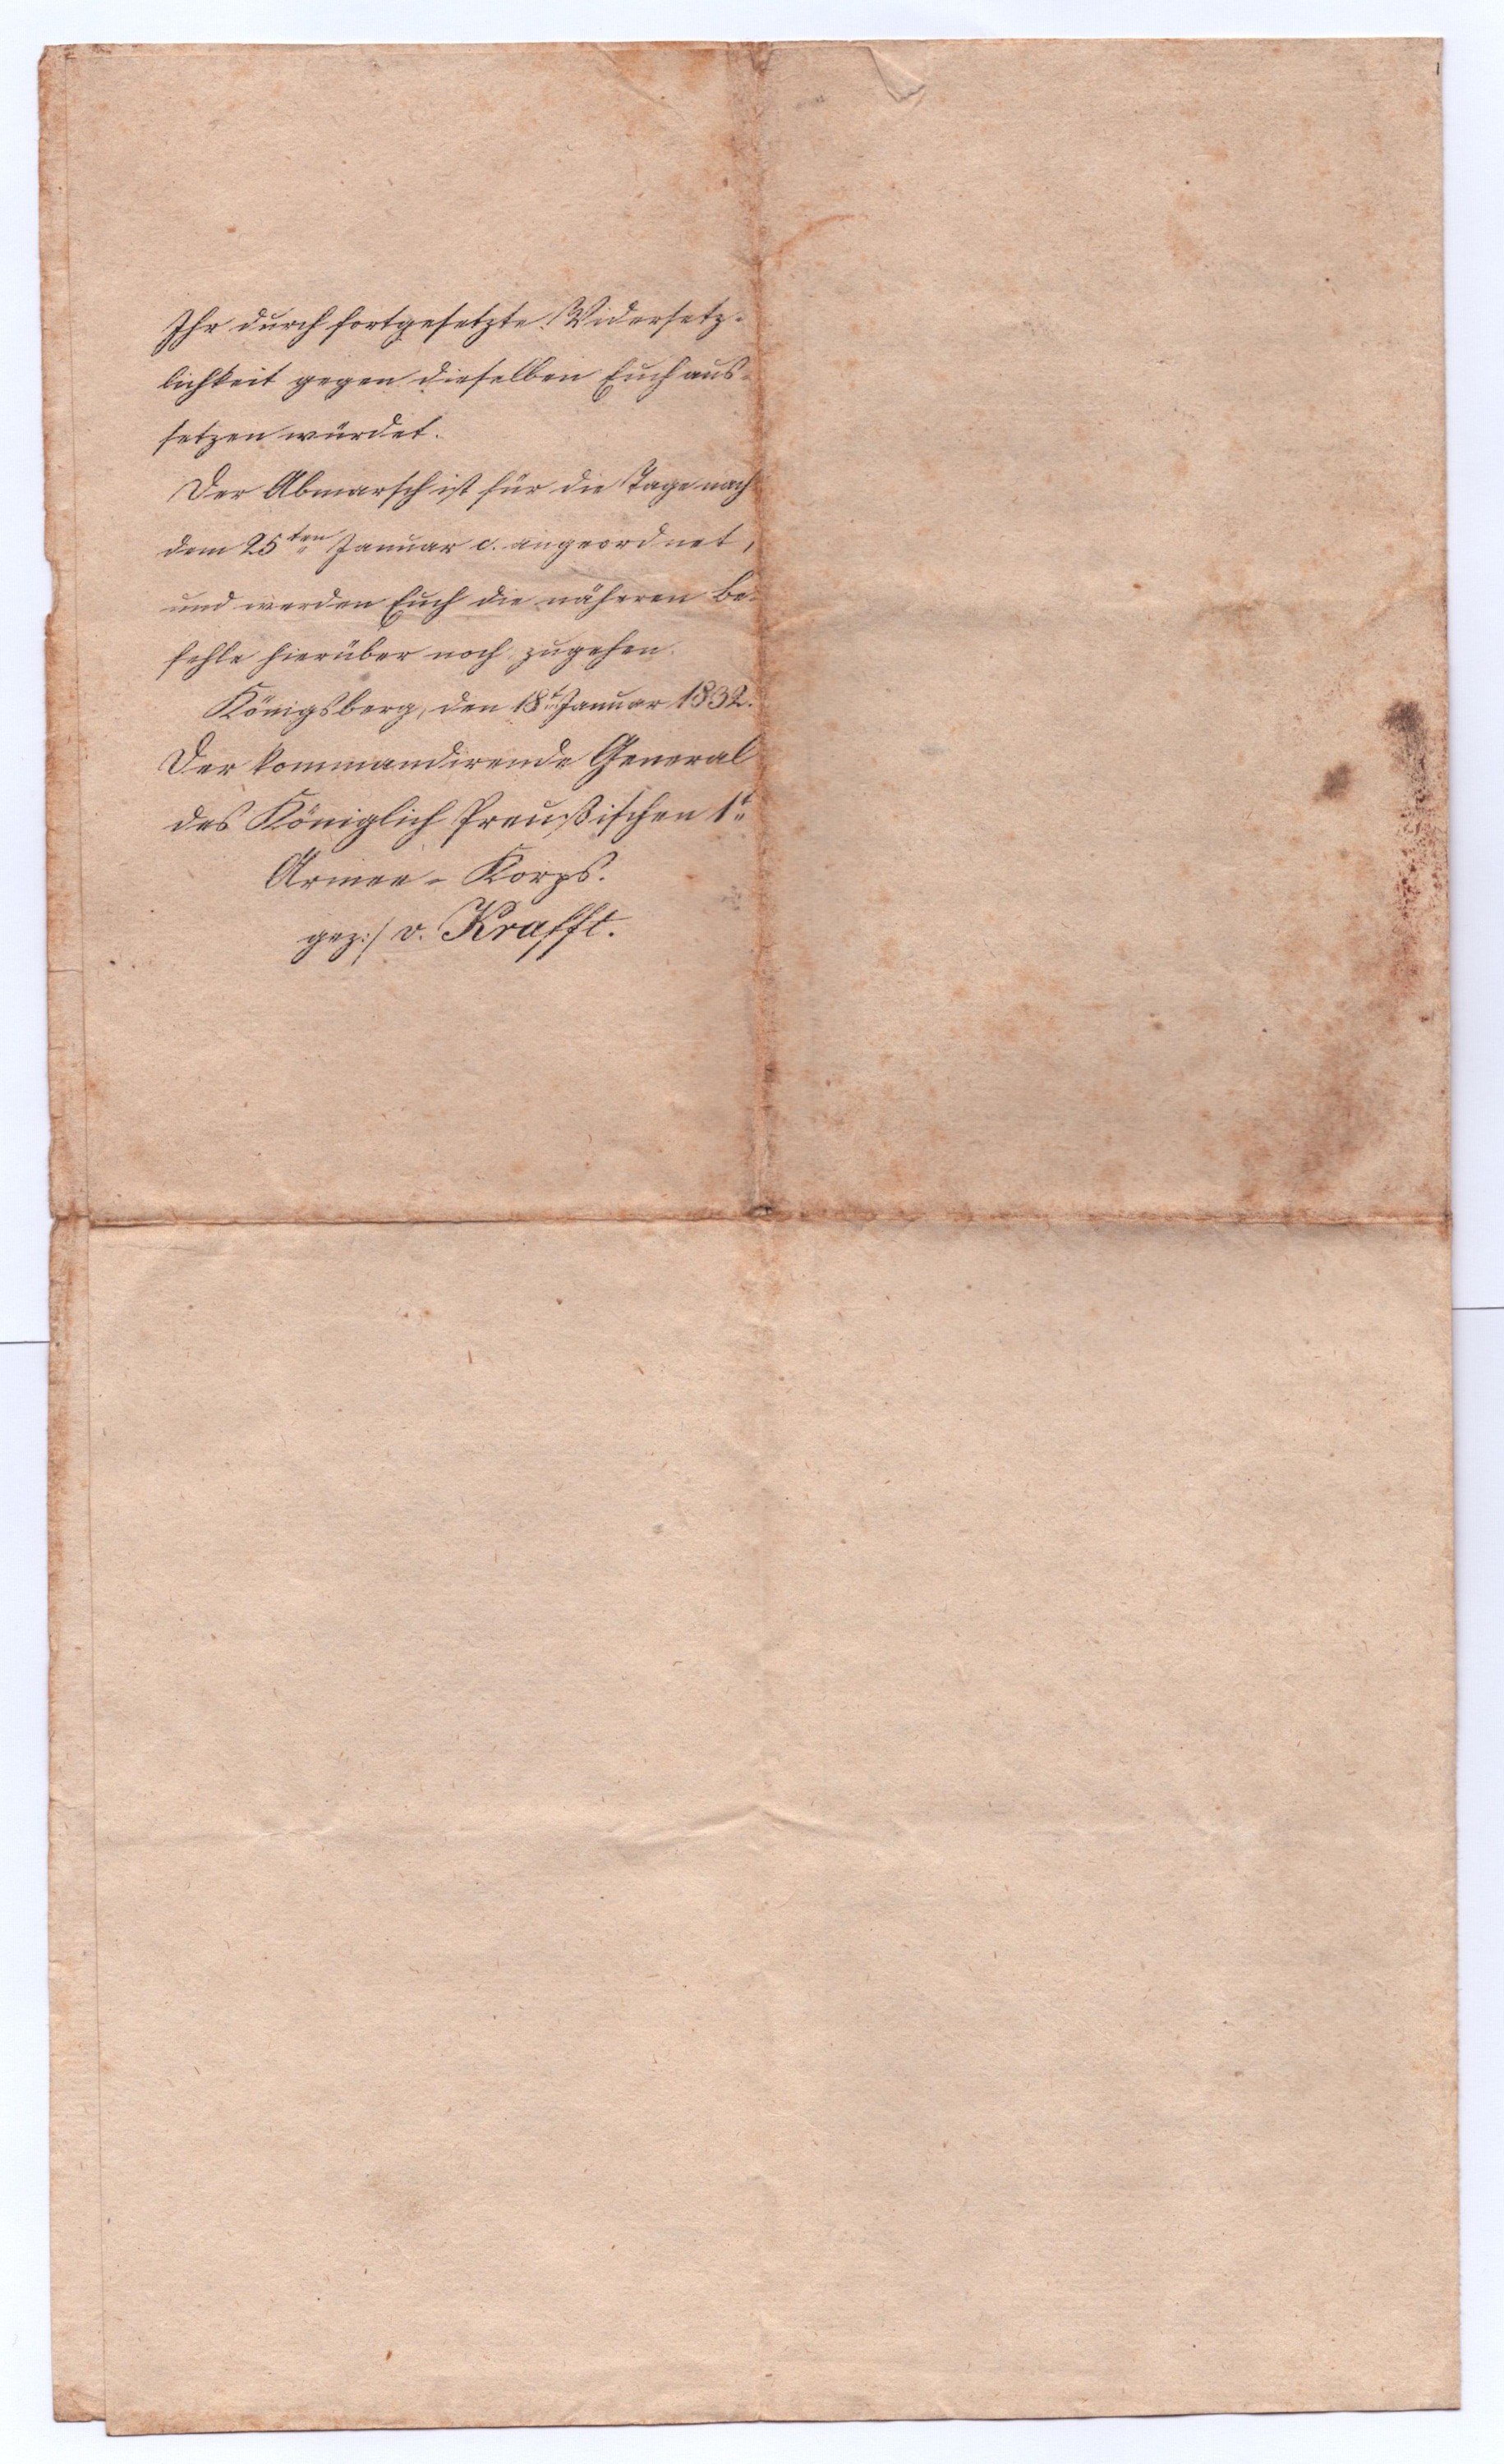 Ihr durch fortgesetzte Widersetz-
lichkeit gegen dieselben Euch aus-
setzen würdet.
Der Abmarsch ist für die Tage nach
dem 25ten Januar c. angeordnet,
und werden Euch die näheren Be-
fehle hierüber noch zugehen.
Königsberg, den 18t Januar 1832.
Der kommandirende General
des Königlich Preußischen 1t
Armee-Korps.
gez:/ v. Krafft.